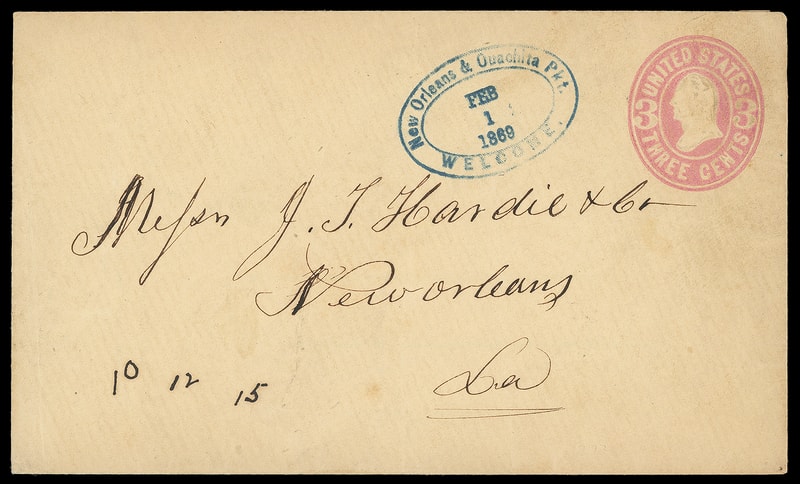 New Orleans & Ouachita Pkt.
FEB
1
1869
WELCOME.
UNITED STATES
3 3
THREE CENTS
Messrs J. T. Hardie & Co
New Orleans
La
10 12 15